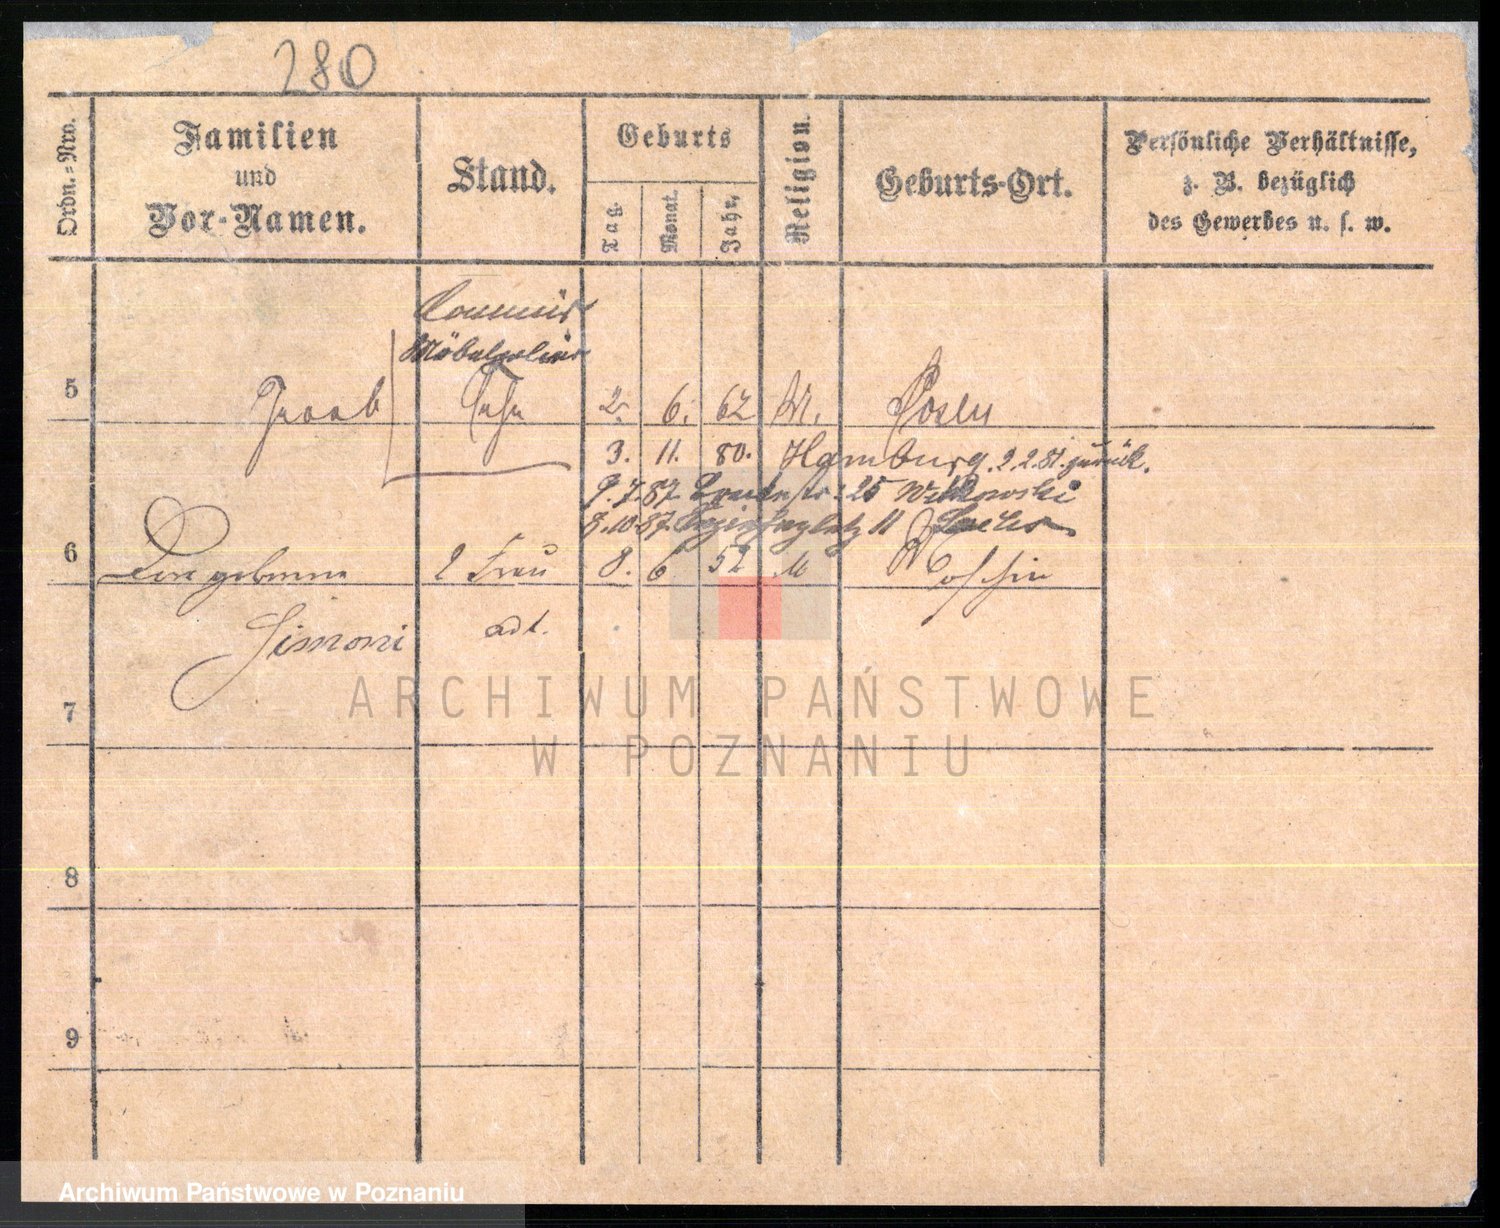 280
Ordn.-Nro.
Familien
und
Vor-Namen.
Stand.
Geburts
Tag.
Monat.
Jahr.
Religion.
Geburts-Ort.
Persönliche Verhältnisse,
z. B. bezüglich
des Gewerbes u. s. w.
Commis
Möbelpolier
5
Jacob
Sohn
2.
6.
62
M.
Posen
3. 11. 80. Hamburg. 2.2.81. zurück.
9.7.87. 25 Witkowski
8.10.87. 11
6
geborene
2 Frau
8.
6
52
M
Moschin
Simoni
adt.
7
ARCHIWUM PAŃSTWOWE
W POZNANIU
8
9
Archiwum Państwowe w Poznaniu